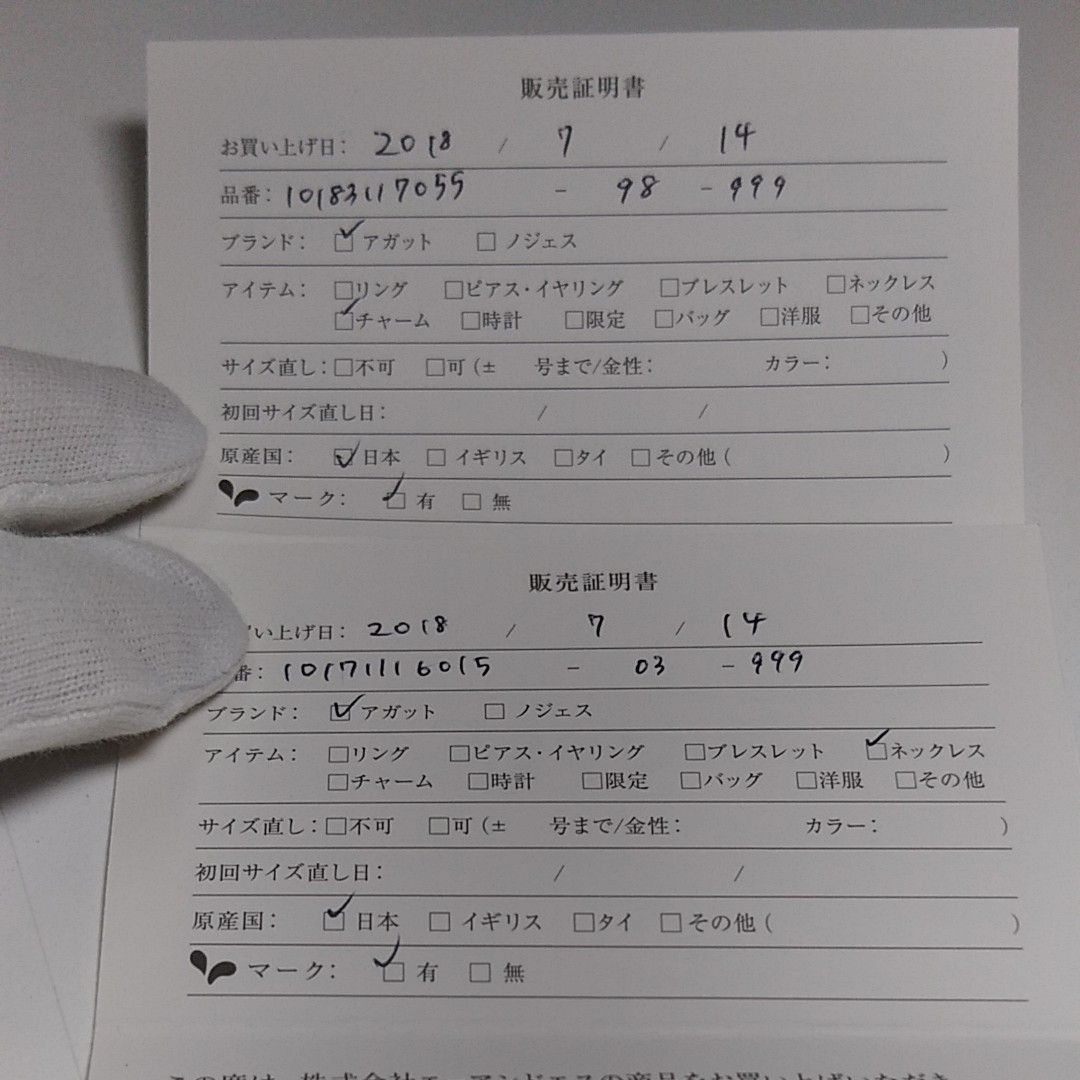 販売証明書
お買い上げ日： 2018 / 7 / 14
品番：10183117055 - 98 - 999
ブランド： ☑アガット □ノジェス
アイテム： □リング □ピアス・イヤリング □ブレスレット □ネックレス
☑チャーム □時計 □限定 □バッグ □洋服 □その他
サイズ直し：□不可 □可（± 号まで/金性： カラー： ）
初回サイズ直し日： / /
原産国： ☑日本 □イギリス □タイ □その他（ ）
マーク： ☑有 □無
販売証明書
い上げ日： 2018 / 7 / 14
番：10171116015 - 03 - 999
ブランド： ☑アガット □ノジェス
アイテム： □リング □ピアス・イヤリング □ブレスレット ☑ネックレス
□チャーム □時計 □限定 □バッグ □洋服 □その他
サイズ直し：□不可 □可（± 号まで/金性： カラー： ）
初回サイズ直し日： / /
原産国： ☑日本 □イギリス □タイ □その他（ ）
マーク： ☑有 □無
この度は、株式会社エーアンドエスの商品をお買い上げいただき